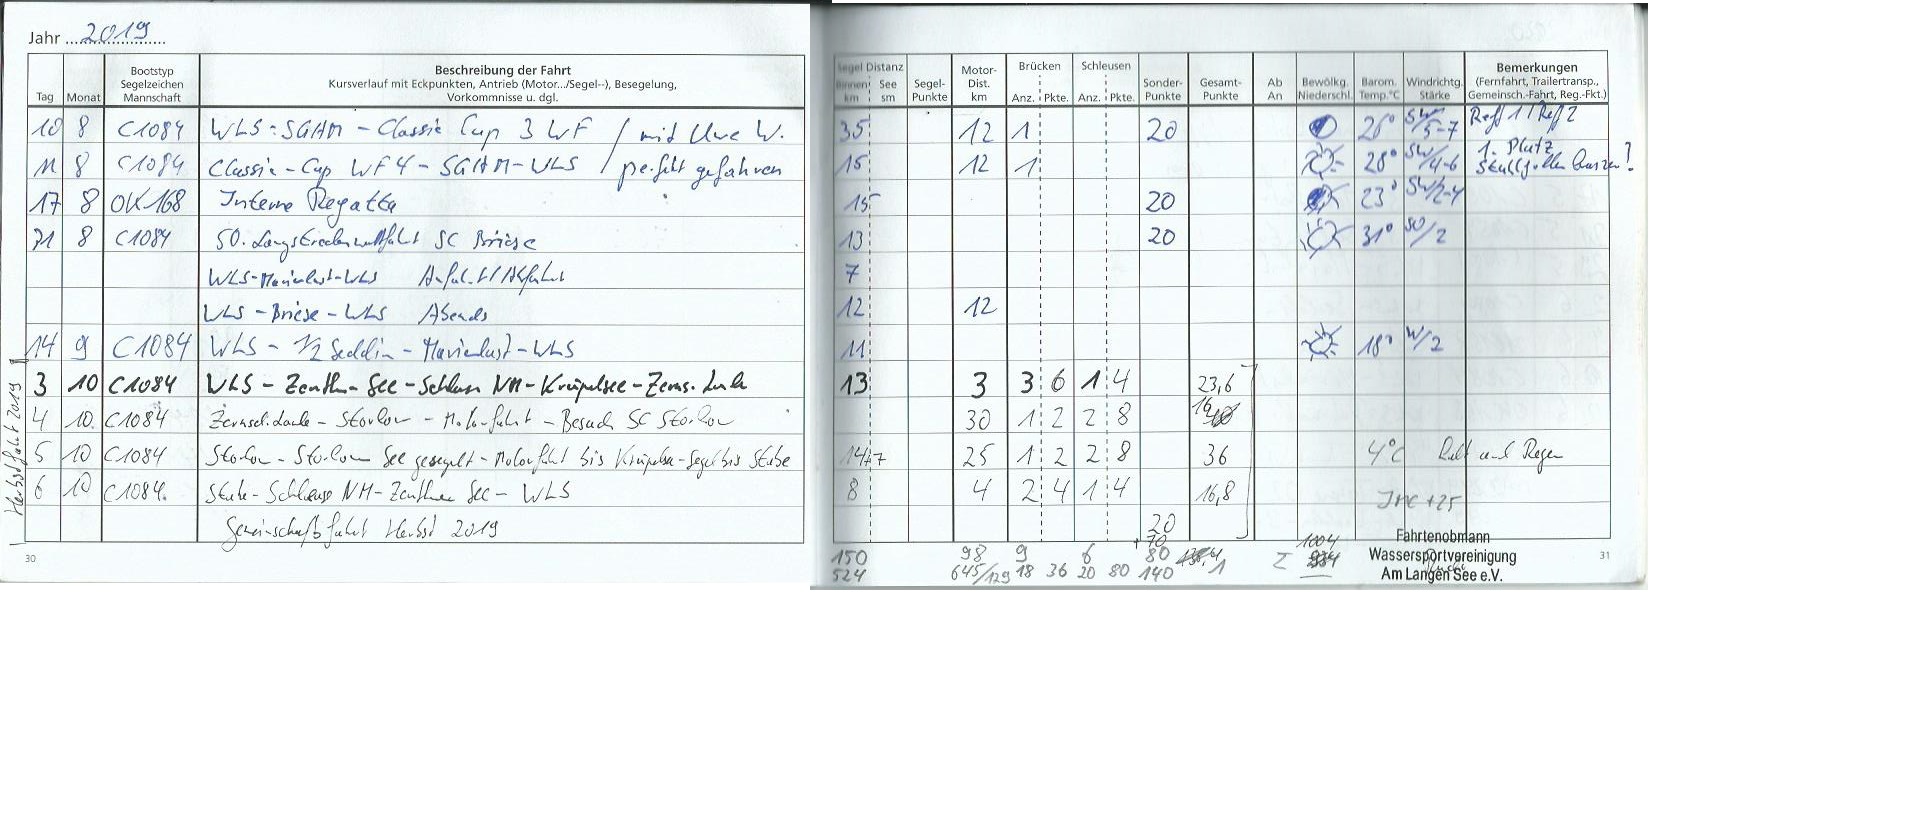 Jahr 2019
Tag Monat Bootstyp Segelzeichen Mannschaft Beschreibung der Fahrt
Kursverlauf mit Eckpunkten, Antrieb (Motor.../Segel--), Besegelung,
Vorkommnisse u. dgl.
10 8 C1084 WLS - SGAM - Classic Cup 3 WF / mit Uwe W.
11 8 C1084 Classic-Cup WF 4 - SGAM - WLS / perfekt gefahren
17 8 OK 168 Interne Regatta
31 8 C1084 50. Langstreckenwettfahrt SC Briese
WLS-Marienlust-WLS Anfahrt/Abfahrt
WLS - Briese - WLS Abends
14 9 C1084 WLS - 1/2 Seddin - Marienlust - WLS
Herbstfahrt 2019
3 10 C1084 WLS - Zeuthn See - Schleuse NM - Krüpelsee - Zerns. Lank
4 10. C1084 - Storkow - Motorfahrt - Besuch SC Storkow
5 10 C1084 Storkow - Storkow See gesegelt - Motorfahrt bis Krüpelsee - Segel bis Stube
6 10 C1084. Stube - Schleuse NM - Zeuthner See - WLS
Gemeinschaftsfahrt Herbst 2019
30
Segel Distanz Binnen km See sm Segel-Punkte Motor-Dist. km Brücken Anz. Pkte. Schleusen Anz. Pkte. Sonder-Punkte Gesamt-Punkte Ab An Bewölkg. Niederschl. Barom. Temp.°C Windrichtg. Stärke Bemerkungen
(Fernfahrt, Trailertransp.,
Gemeinsch.-Fahrt, Reg.-Fkt.)
35 12 1 20 26° SW/5-7 Reff 1 / Reff 2
15 12 1 28° SW/4-6 1. Platz
15 20 23° SW/2-4
13 20 31° SO/2
7
12 12
11 18° W/2
13 3 3 6 1 4 23,6
30 1 2 2 8 16
14 25 1 2 2 8 36 4°C Kalt und Regen
8 4 2 4 1 4 16,8
+25
20
+10
150 98 9 6 80 1004
524 645/129 18 36 20 80 140 Σ
Fahrtenobmann
Wassersportvereinigung
Am Langen See e.V.
31